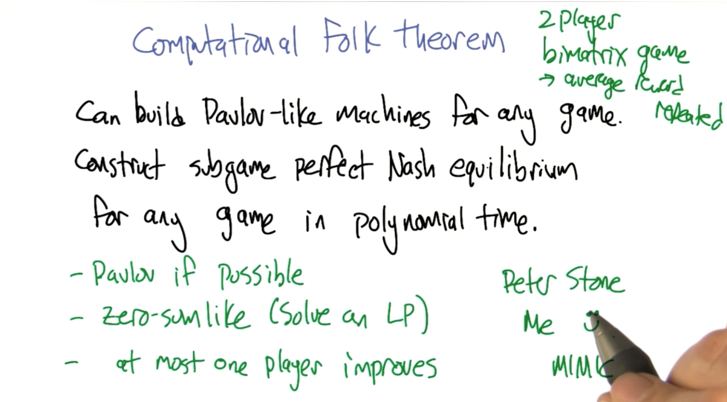 Computational Folk theorem
2 player
bimatrix game
→ average reward
repeated
Can build Pavlov-like machines for any game.
Construct subgame perfect Nash equilibrium
for any game in polynomial time.
- Pavlov if possible
- zero-sum like (solve an LP)
- at most one player improves
Peter Stone
Me